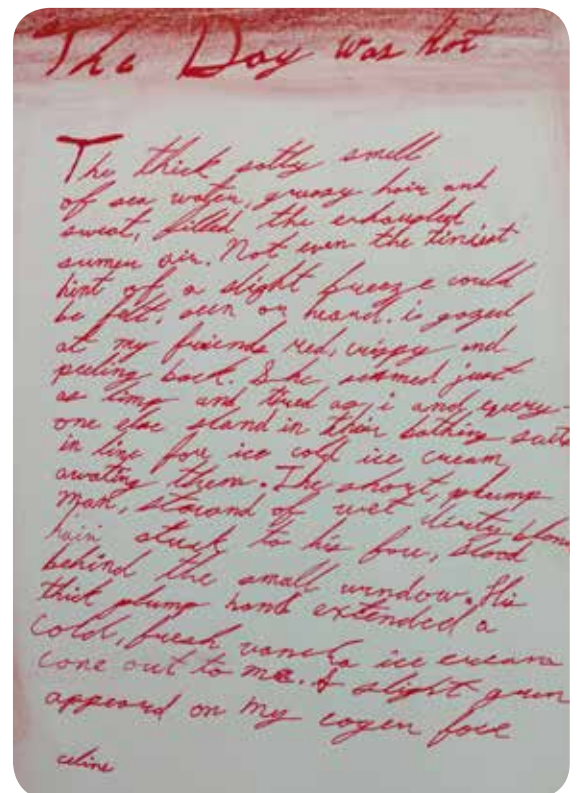 The Day was hot
The thick salty smell
of sea water, greasy hair and
sweat, filled the exhausted
sumer air. Not even the tiniest
hint of a slight breeze could
be felt, seen or heard. i gazed
at my friends red, crispy and
peeling back. She seemed just
as limp and tired as i and every-
one else stand in their bathing suits
in line for ice cold ice cream
awating them. The short, plump
man, of wet dirty blond
hair stuck to his face, stood
behind the small window. His
thick plump hand extended a
cold, fresh vanela ice cream
cone out to me. A slight grin
appeard on my face
celine